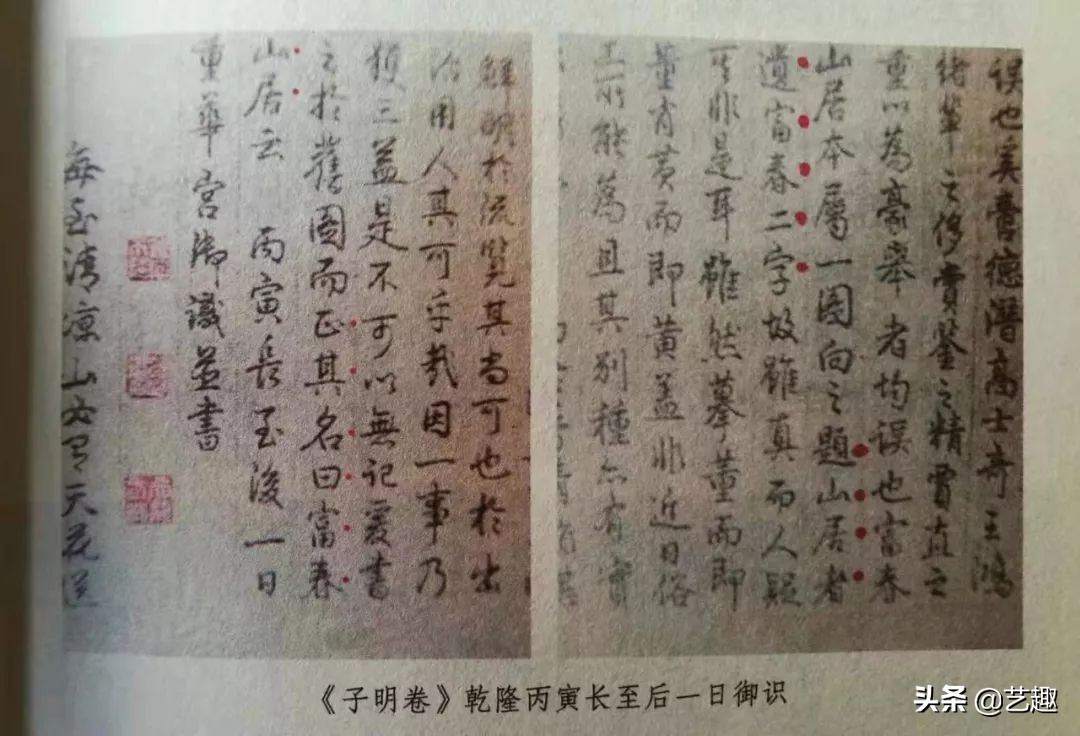 誤也奚啻德潛高士奇王鴻
緒輩之侈賞鑒之精買直之
重以為豪舉者均誤也富春
山居本屬一圖向之題山居者
遺富春二字故雖真而人疑
其非是耳雖然摹董而即
董肖黃而即黃蓋非近日俗
工所能為且其別種亦有實
鮮明於流覽其尚可也於出
治用人其可乎哉因一事乃
獲三益是不可以無記爰書
之於舊圖而正其名曰富春
山居云 丙寅長至後一日
重華宮御識並書
每至清涼山必有天花送
《子明卷》乾隆丙寅长至后一日御识
头条@艺趣